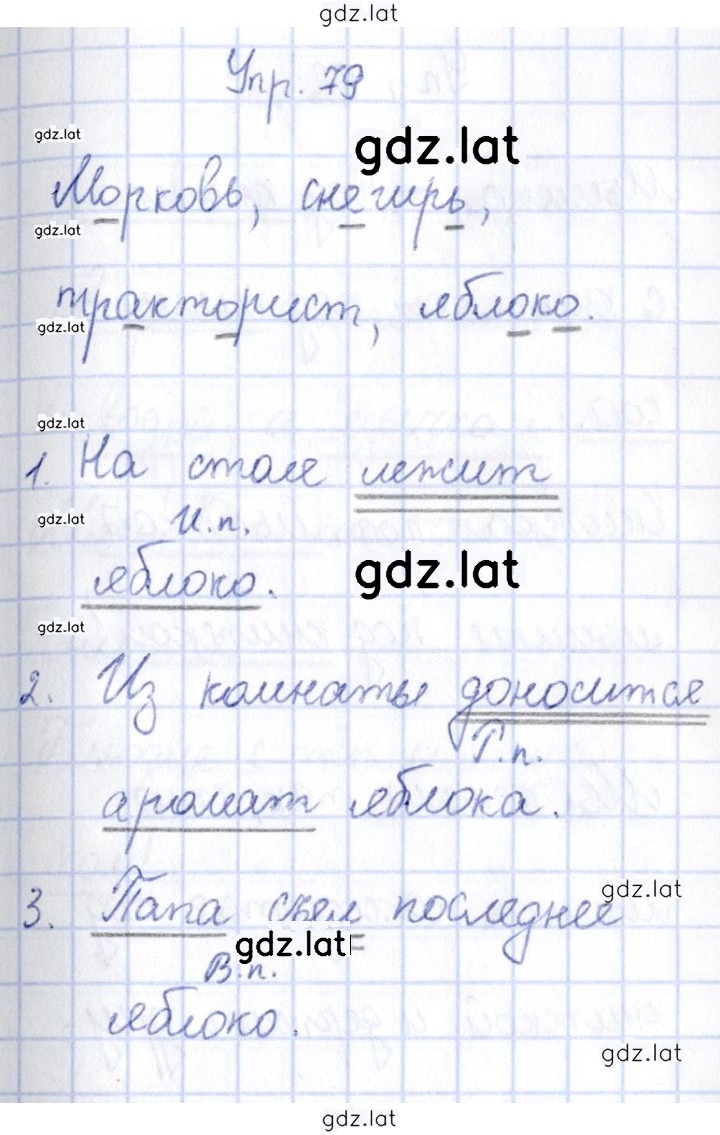 gdz.lat
Упр. 79
gdz.lat
gdz.lat
Морковь, снегирь,
gdz.lat
тракторист, яблоко.
gdz.lat
gdz.lat
1. На столе лежит
gdz.lat
И.п.
яблоко.
gdz.lat
gdz.lat
2. Из комнаты доносится
Р.п.
аромат яблока.
gdz.lat
3. Папа съел последнее
gdz.lat
В.п.
яблоко.
gdz.lat
gdz.lat